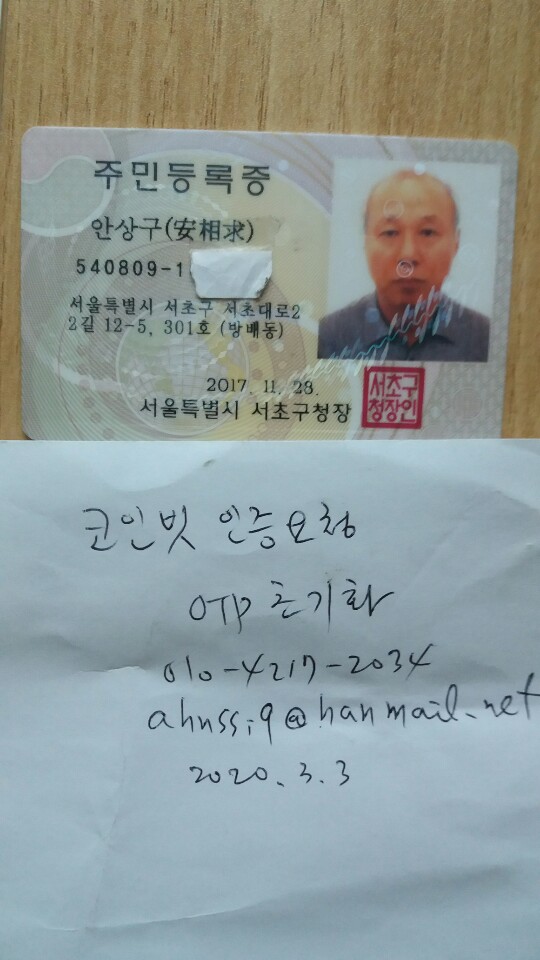 주민등록증
안상구(安相求)
540809-1
서울특별시 서초구 서초대로2
2길 12-5, 301호 (방배동)
2017. 11. 28.
서울특별시 서초구청장
서초구
청장인
코인빗 인증요청
OTP 초기화
010-4217-2034
ahnssi9@hanmail.net
2020. 3. 3